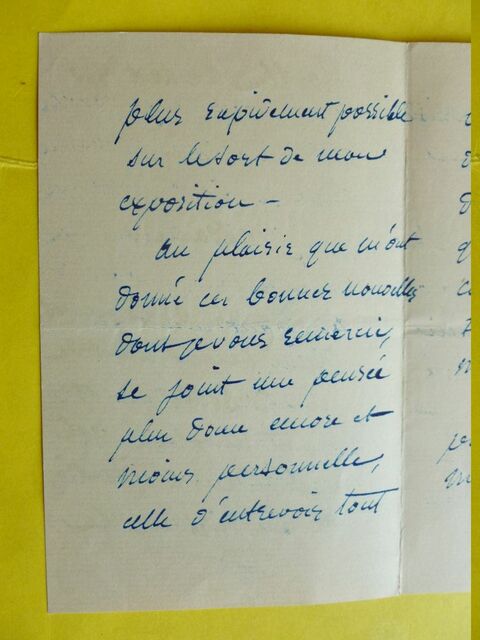 plus rapidement possible
sur le sort de mon
exposition –
au plaisir que m'ont
donné ces bonnes nouvelles
dont je vous remercie,
se joint une pensée
plus douce encore et
moins personnelle,
celle d'entrevoir tout